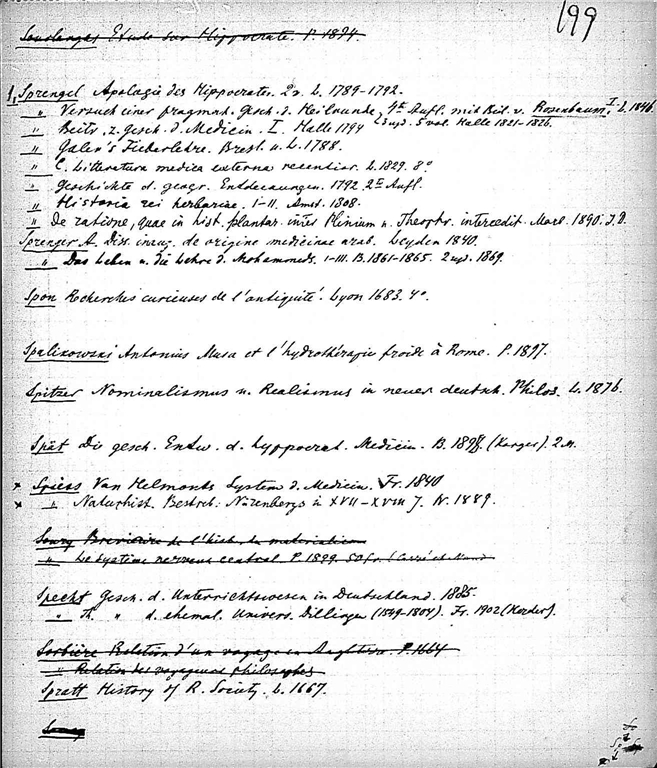 199
Soulanges Etude sur Hippocrate. P. 1894.
1, Sprengel Apologie des Hippocrates. 2v. L. 1789-1792.
" Versuch einer pragmat. Gesch. d. Heilkunde, 4te Aufl. mit Beil. v. Rosenbaum. I. L. 1846.
3 изд. 5 vol. Halle 1821-1828.
" Beitr. z. Gesch. d. Medicin. I. Halle 1794
" Galen's Fieberlehre. Bresl. u. L. 1788.
" C. Litteratura medica externa recentior. L. 1829. 8°
" Geschichte d. geogr. Entdeckungen. 1792. 2te Aufl.
" Historia rei herbariae. I-II. Amst. 1808.
" De ratione, quae in hist. plantar. inter Plinium u. Theophr. intercedit. Marb. 1890. I.D.
Sprenger A. Diss. inaug. de origine medicinae arab. Leyden 1840.
" Das Leben u. die Lehre d. Mohammeds. I-III. B. 1861-1865. 2 изд. 1869.
Spon Recherches curieuses de l'antiquité. Lyon 1683. 4°.
Spalikowski Antonius Musa et l'hydrothérapie froide à Rome. P. 1897.
Spitzer Nominalismus u. Realismus in neuer deutsch. Philos. L. 1876.
Spät Die gesch. Entw. d. hyppocrat. Medicin. B. 1898. (Karger). 2 M.
× Spiess Van Helmonts System d. Medicin. Fr. 1840
× " Naturhist. Bestreb. Nürenbergs in XVII-XVIII J. N. 1889.
Soury Breviaire de l'hist. du materialisme
" Le système nerveux central. P. 1899. 50 fr. (Carré et Naud
Specht Gesch. d. Unterrichtswesen in Deutschland. 1885.
" Th. " d. ehemal. Univers. Dillingen (1549-1804). Fr. 1902 (Herder).
Sorbière Relation d'un voyage en Angleterre. P. 1664
" Relation des voyageurs philosophes
Spratt History of R. Society. L. 1667.
Soury